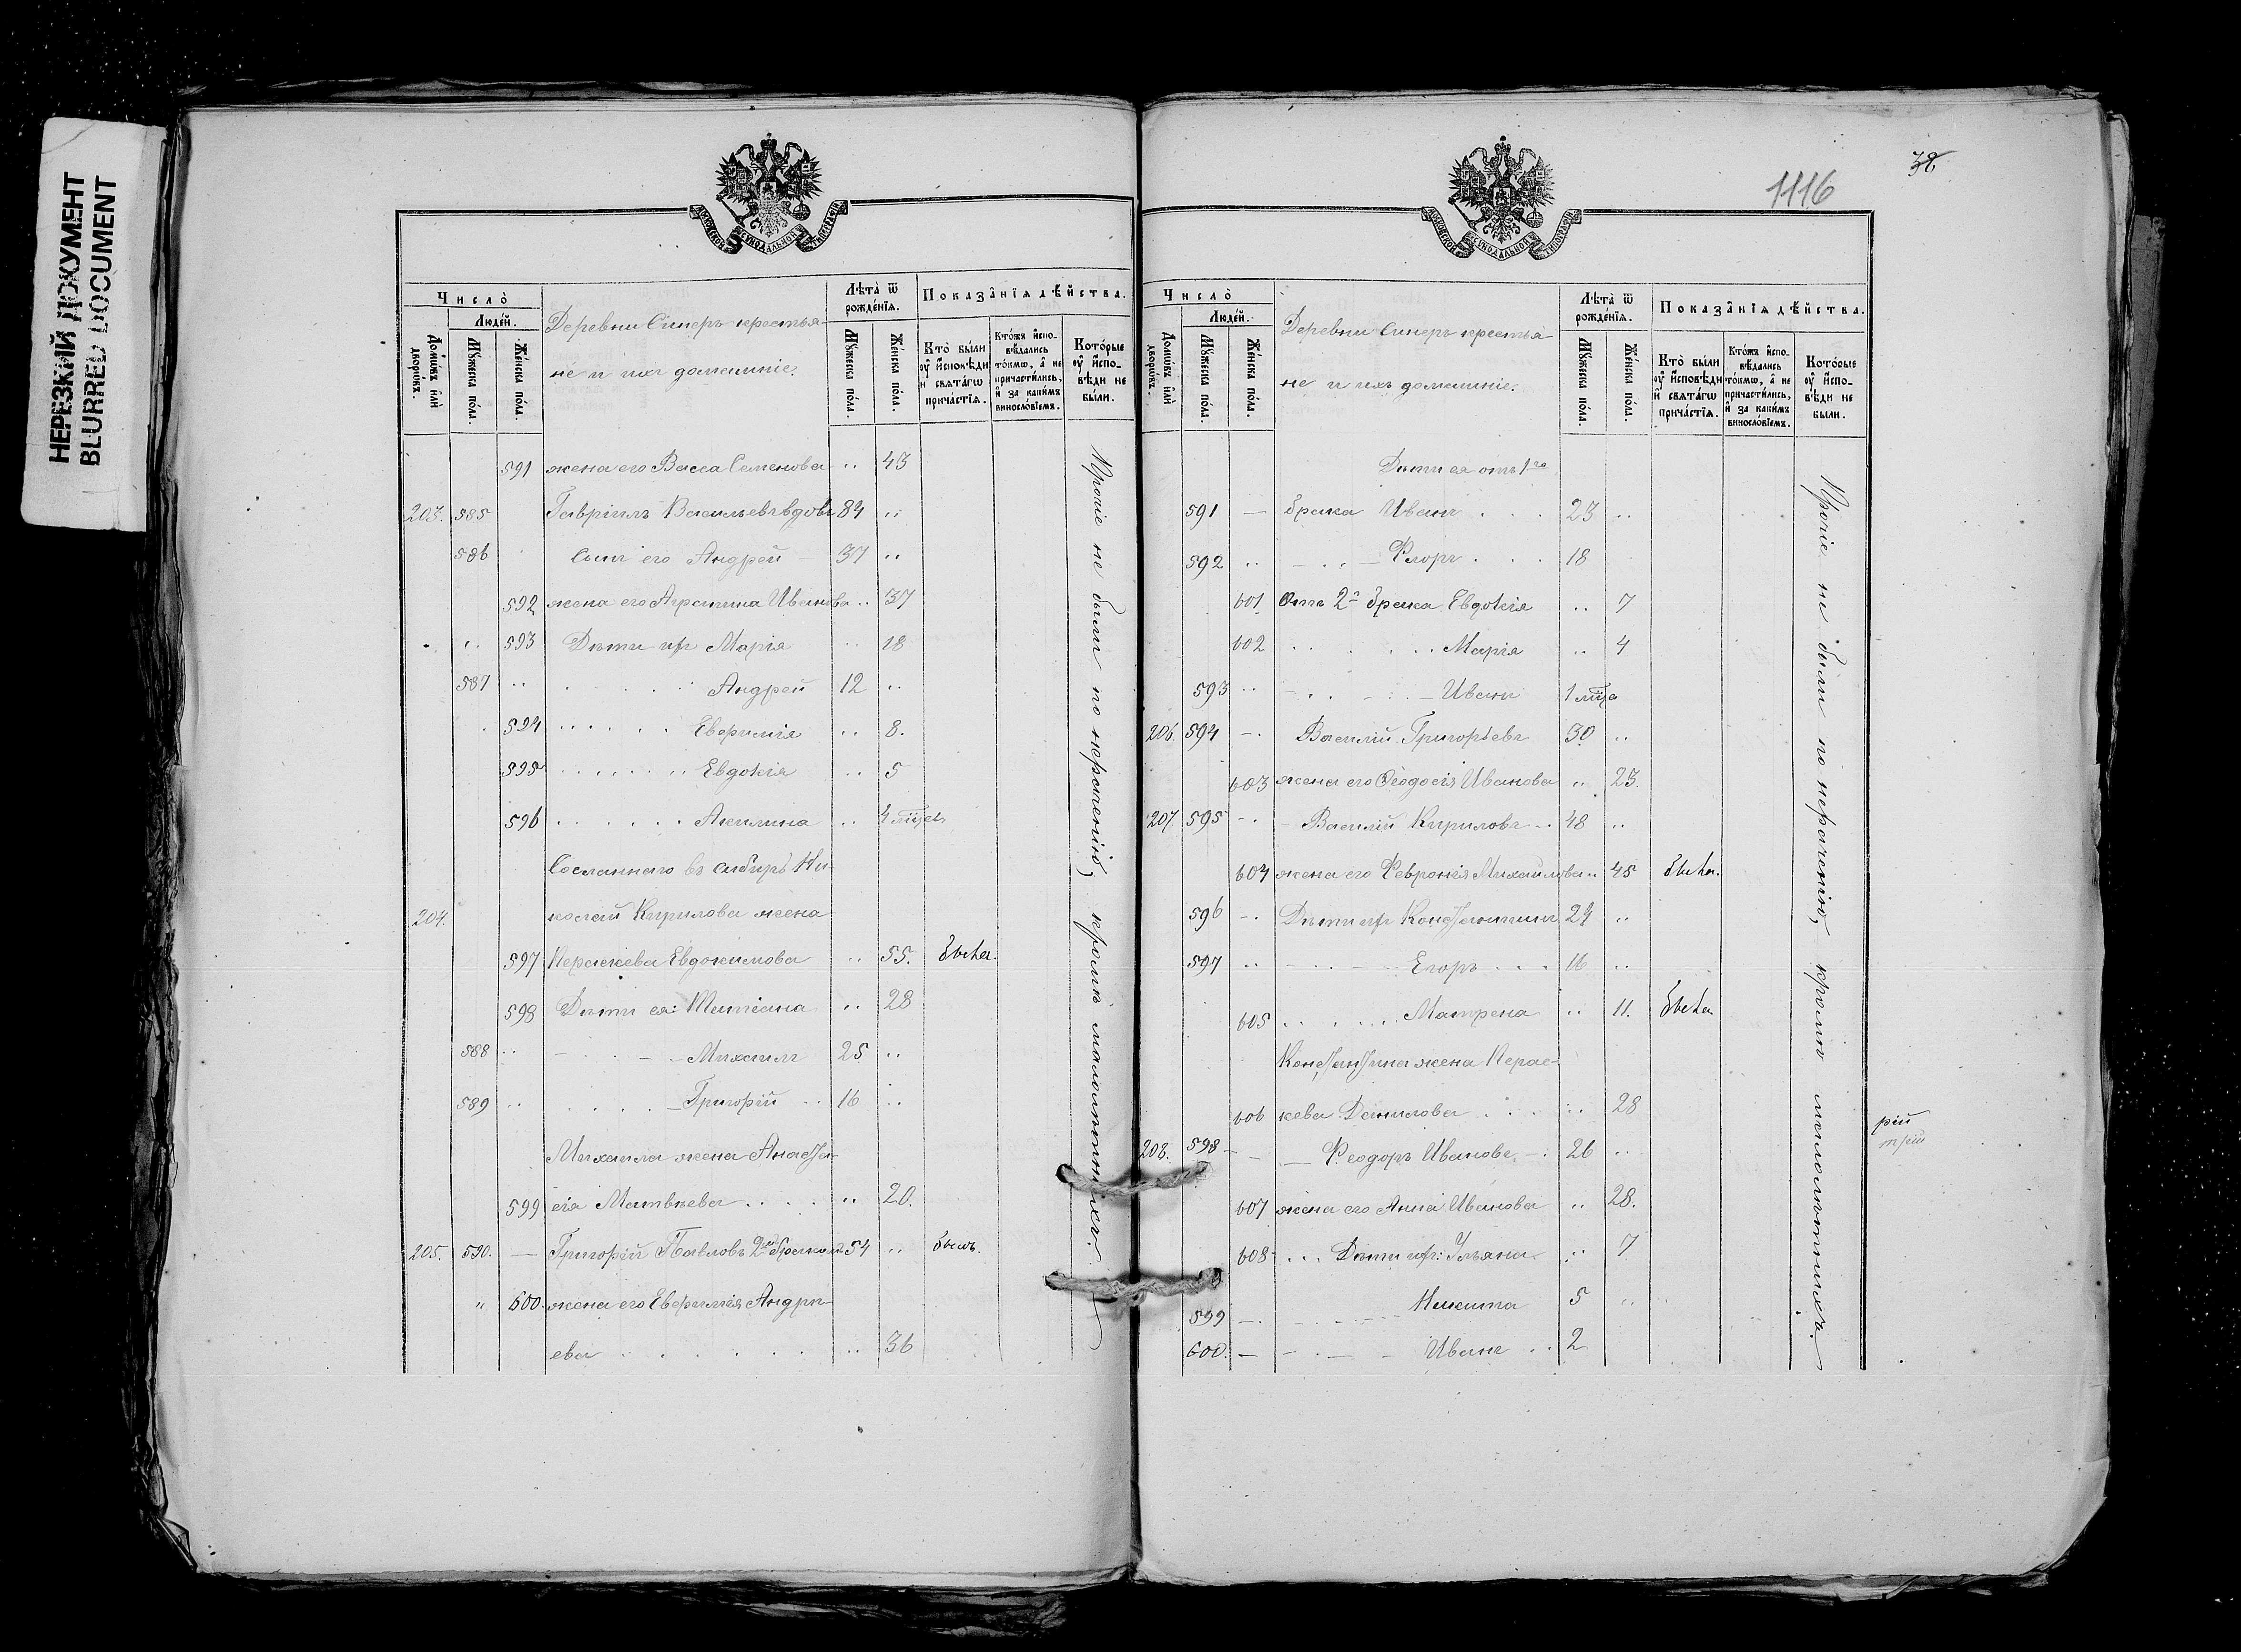 НЕРЕЗКИЙ ДОКУМЕНТ
BLURRED DOCUMENT
МОСКОВСКОЙ СѴНОДАЛЬНОЙ ТИПОГРАФІИ
Число̀
Люде́й.
Домѡ́въ и҆лѝ дворѡ́въ.
Мꙋ́жеска по́ла.
Же́нска по́ла.
Деревни Синеръ крестья-
не и ихъ домашніе.
Лѣта̀ ѿ рожде́нїѧ.
Мꙋ́жеска по́ла.
Же́нска по́ла.
Показа̑нїѧ дѣ́йства.
Кто̀ бы́ли оу҆ и҆сповѣди и҆ свѧта́гѡ прича́стїѧ.
Кто́жъ и҆спо-вѣ́дались то́кмѡ, а҆ не причасти́лись, и҆ за каки́мъ винослов́їемъ.
Кото́рые оу҆ и҆спо-вѣди не бы́ли.
591 жена его Васса Семенова .. 43
203. 585 Гавріилъ Васильевъ вдовъ 84 ..
586 Сынъ его Андрей 37 ..
592 жена его Агрипина Иванова .. 37
593 Дѣти ихъ Марія .. 18
587 .. Андрей 12 ..
594 Евфимія .. 8.
595 Евдокія .. 5
596 Акилина .. 4 мѣсец
Сосланнаго въ Сибирь Ни-
204. колай Кирилова жена
597 Параскева Евдокимова .. 55. была.
598 Дѣти ея: Татіана .. 28
588 .. Михаилъ 25 ..
589 .. Григорій 16 ..
Михаила жена Анаста-
599 сія Матвѣева .. 20.
205. 590. — Григорій Павловъ 2мъ бракомъ 54 .. былъ.
" 600. жена его Евфимія Андре-
ева .. 36
Прочіе не были по нераченію, кромѣ малолѣтнихъ.
38
1116
МОСКОВСКОЙ СѴНОДАЛЬНОЙ ТИПОГРАФІИ
Число̀
Люде́й.
Домѡ́въ и҆лѝ дворѡ́въ.
Мꙋ́жеска по́ла.
Же́нска по́ла.
Деревни Синеръ крестья-
не и ихъ домашніе.
Лѣта̀ ѿ рожде́нїѧ.
Мꙋ́жеска по́ла.
Же́нска по́ла.
Показа̑нїѧ дѣ́йства.
Кто̀ бы́ли оу҆ и҆сповѣди и҆ свѧта́гѡ прича́стїѧ.
Кто́жъ и҆спо-вѣ́дались то́кмѡ, а҆ не причасти́лись, и҆ за каки́мъ винослов́їемъ.
Кото́рые оу҆ и҆спо-вѣди не бы́ли.
Дѣти ея отъ 1го
591 — брака Иванъ 23 ..
592 .. Флоръ 18
601 Отъ 2го брака Евдокія .. 7
602 Марія .. 4
593 .. Иванъ 1 мѣсца
206. 594 — Василій Григорьевъ 30 ..
603 жена его Ѳеодосія Иванова .. 23.
207. 595 — Василій Кириловъ 48 ..
604 жена его Феврония Михаилова .. 45 была.
596 — Дѣти ихъ Константинъ 24 ..
597 .. Егоръ 16 ..
605 Матрена .. 11. была
Константина жена Парас-
606 кева Данилова .. 28
208. 598 — Ѳеодоръ Ивановъ 26 ..
607 жена его Анна Иванова .. 28.
608 Дѣти ихъ: Ульяна .. 7
599 — Никита 5 ..
600. — Иванъ 2
Прочіе не были по нераченію, кромѣ малолѣтнихъ.
рей